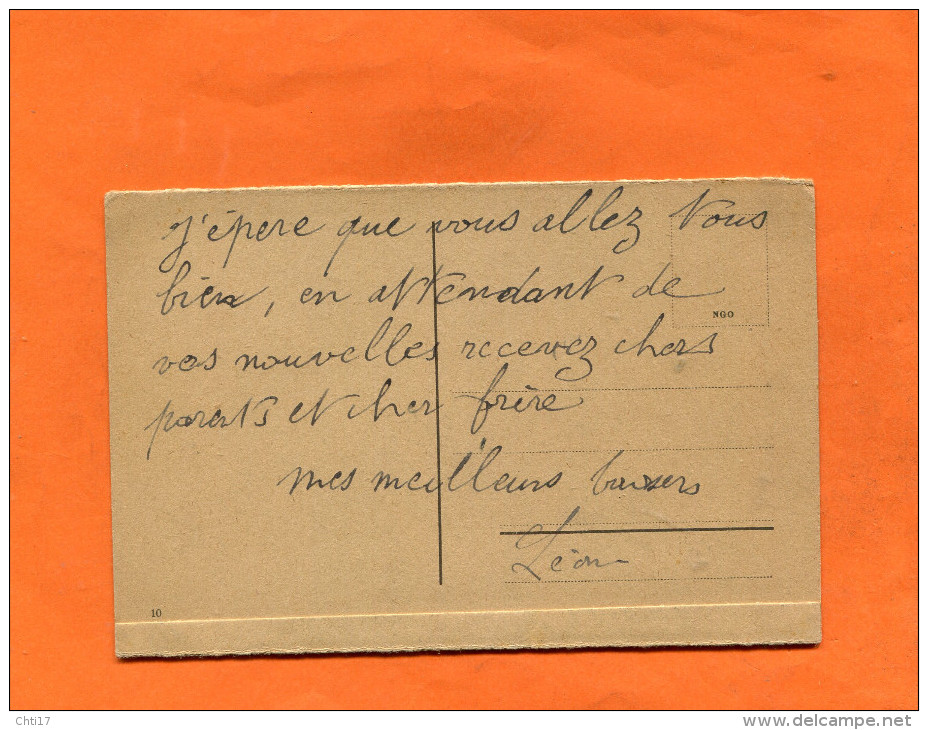 J'épere que vous allez tous
bien, en attendant de
NGO
vos nouvelles recevez chers
parents et cher frère
mes meilleurs baisers
Léon
10
Chti17
www.delcampe.net